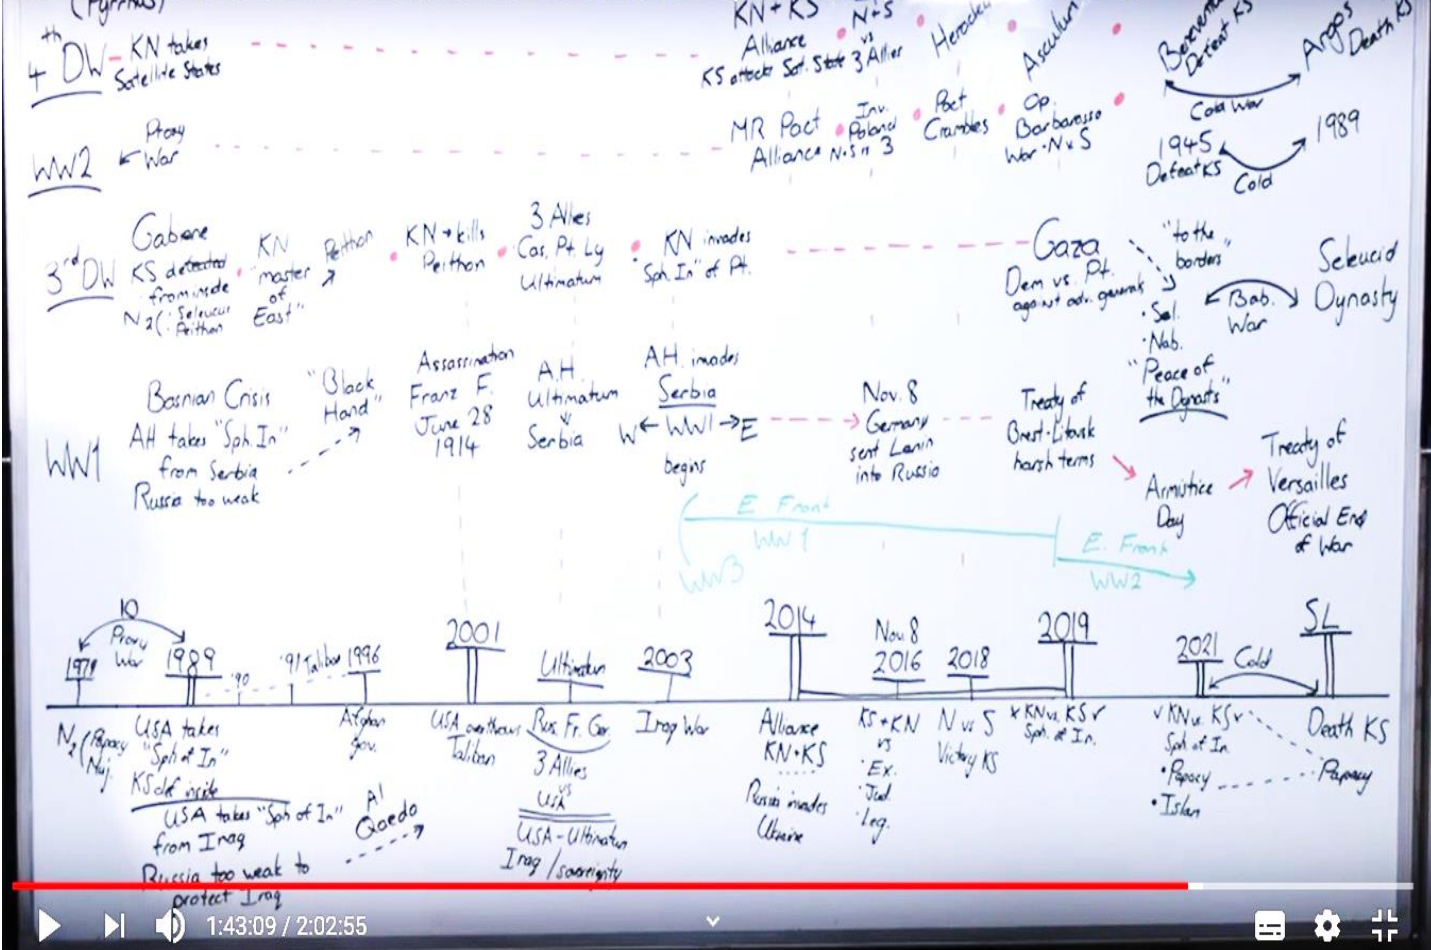 (Pyrrhus)
4th DW - KN takes
Satellite States
KN + KS
Alliance
KS attacks Sat. State
N+S
vs
3 Allies
Asculum
Defeat KS
Cold War
Argos
Death KS
WW2
Proxy
War
MR Pact
Alliance N.S
Inv.
Poland
3
Pact
Crumbles
Op.
Barbarossa
War - N v S
1945
Defeat KS
Cold
1989
3rd DW
Gabene
KS defeated
from inside
N2(: Seleucus
Peithon
KN
"master
of
East"
Peithon
KN → kills
Peithon
3 Allies
Cas. Pt. Ly
Ultimatum
KN invades
"Sph. In" of Pt.
Gaza
Dem vs. Pt.
against adv. generals
"to the
borders"
• Sel.
• Nab.
Bab.
War
Seleucid
Dynasty
"Peace of
the Dynasts"
WW1
Bosnian Crisis
AH takes "Sph. In"
from Serbia
Russia too weak
"Black
Hand"
Assassination
Franz F.
June 28
1914
A.H.
Ultimatum
Serbia
A.H. invades
Serbia
W ← WW1 → E
begins
Nov. 8
Germany
sent Lenin
into Russia
Treaty of
Brest-Litovsk
harsh terms
Armistice
Day
Treaty of
Versailles
Official End
of War
E. Front
WW1
WW3
E. Front
WW2
10
Proxy
War
1979
1989
'90
'91 Taliban
1996
2001
Ultimatum
2003
2014
Nov. 8
2016
2018
2019
2021
Cold
SL
N2 (Papacy
Muj.
USA takes
"Sph of In"
KS def inside
USA takes "Sph of In"
from Iraq
Russia too weak to
protect Iraq
Afghan
gov.
Al
Qaeda
USA overthrows
Taliban
Rus. Fr. Ger.
3 Allies
vs
USA
USA - Ultimatum
Iraq / sovereignty
Iraq War
Alliance
KN + KS
Russia invades
Ukraine
KS + KN
vs
• Ex.
• Jud.
• Leg.
N vs S
Victory KS
x KN vs. KS ✓
Sph. of In.
✓ KN vs. KS x
Sph of In.
• Papacy
• Islam
Death KS
Papacy
1:43:09 / 2:02:55